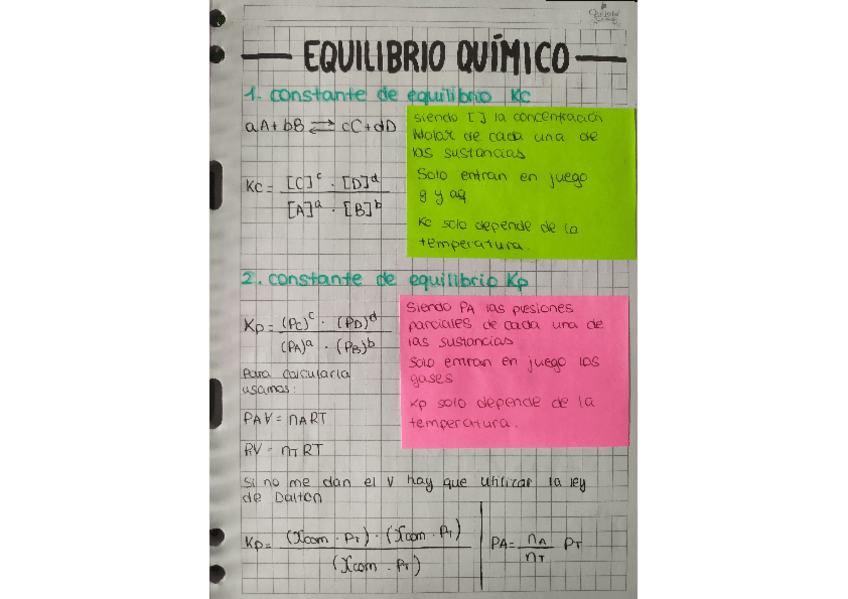 EQUILIBRIO QUÍMICO
1. constante de equilibrio Kc
aA + bB ⇌ cC + dD
Kc = [C]^c · [D]^d / [A]^a · [B]^b
siendo [ ] la concentración
Molar de cada una de
las sustancias
Solo entran en juego
g y aq
Kc solo depende de la
temperatura.
2. constante de equilibrio Kp
Kp = (PC)^c · (PD)^d / (PA)^a · (PB)^b
Siendo PA las presiones
parciales de cada una de
las sustancias
Solo entran en juego los
gases
Kp solo depende de la
temperatura.
Para calcularla
usamos:
PAV = nART
PV = nTRT
Si no me dan el V hay que utilizar la ley
de Dalton
Kp = (Xcom · PT) · (Xcom · PT) / (Xcom · PT)
PA = nA / nT PT